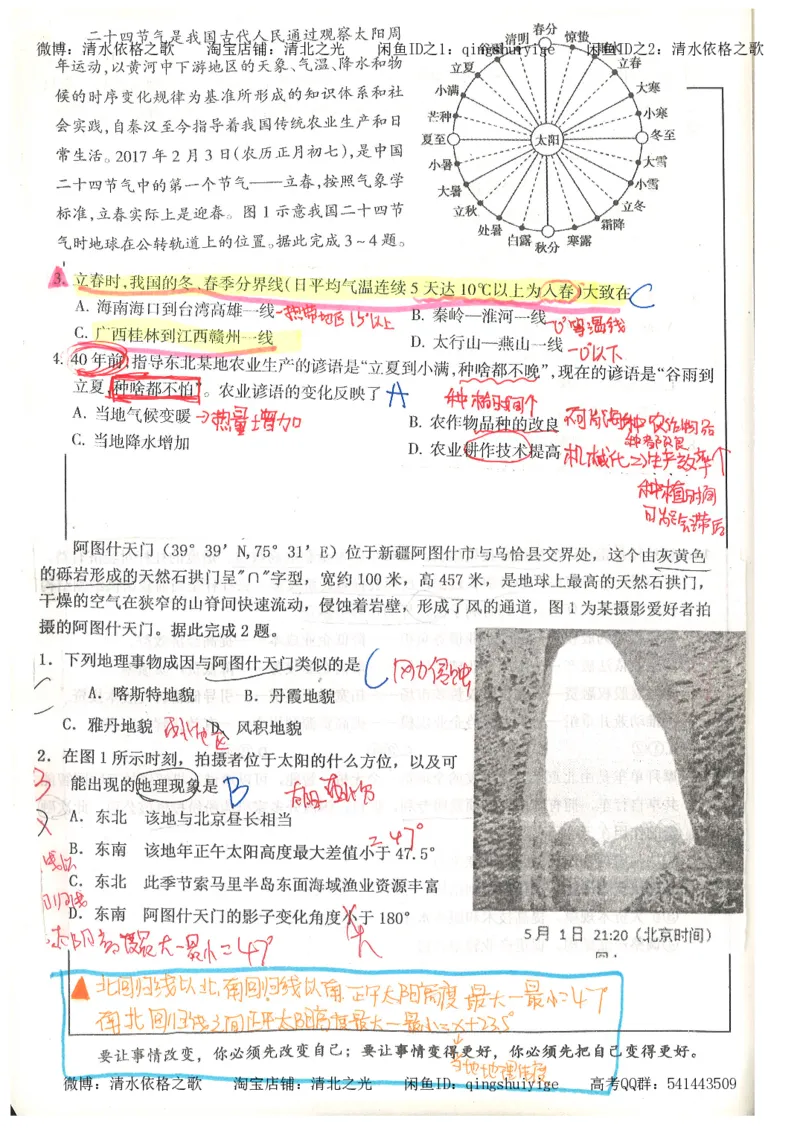 二十四节气是我国古代人民通过观察太阳周
微博：清水依格之歌 淘宝店铺：清北之光 闲鱼ID之1：qingshuiyige 闲鱼ID之2：清水依格之歌
年运动，以黄河中下游地区的天象、气温、降水和物
候的时序变化规律为基准所形成的知识体系和社
会实践，自秦汉至今指导着我国传统农业生产和日
常生活。2017年2月3日(农历正月初七)，是中国
二十四节气中的第一个节气——立春，按照气象学
标准，立春实际上是迎春。图1示意我国二十四节
气时地球在公转轨道上的位置。据此完成3~4题。
春分
清明
惊蛰
立夏
立春
小满
大寒
芒种
小寒
夏至
太阳
冬至
小暑
大雪
大暑
小雪
立秋
立冬
处暑
霜降
白露
秋分
寒露
3. 立春时，我国的冬、春季分界线(日平均气温连续5天达10℃以上为入春)大致在 C
A. 海南海口到台湾高雄一线 -热带地区15°以上
B. 秦岭—淮河一线 -0°等温线
C. 广西桂林到江西赣州一线
D. 太行山—燕山一线 -0°以下
4. 40年前，指导东北某地农业生产的谚语是“立夏到小满，种啥都不晚”，现在的谚语是“谷雨到
立夏，种啥都不怕”。农业谚语的变化反映了 A
种植时间个
A. 当地气候变暖 →热量增加
B. 农作物品种的改良
C. 当地降水增加
D. 农业耕作技术提高 机械化→生产效率个
种植时间
可能会滞后
阿图什天门（39°39′N,75°31′E）位于新疆阿图什市与乌恰县交界处，这个由灰黄色
的砾岩形成的天然石拱门呈"∩"字型，宽约100米，高457米，是地球上最高的天然石拱门，
干燥的空气在狭窄的山脊间快速流动，侵蚀着岩壁，形成了风的通道，图1为某摄影爱好者拍
摄的阿图什天门。据此完成2题。
1．下列地理事物成因与阿图什天门类似的是 C 风力侵蚀
A．喀斯特地貌 B．丹霞地貌
C．雅丹地貌 D、风积地貌
2．在图1所示时刻，拍摄者位于太阳的什么方位，以及可
能出现的地理现象是 B
A．东北 该地与北京昼长相当
=47°
B．东南 该地年正午太阳高度最大差值小于47.5°
C．东北 此季节索马里半岛东面海域渔业资源丰富
D．东南 阿图什天门的影子变化角度小于180°
大
5月1日 21:20（北京时间）
▲北回归线以北,南回归线以南,正午太阳高度最大-最小=47°
南北回归线之间正午太阳高度最大-最小=x+23.5°
当地地理纬度
要让事情改变，你必须先改变自己；要让事情变得更好，你必须先把自己变得更好。
微博：清水依格之歌 淘宝店铺：清北之光 闲鱼ID：qingshuiyige 高考QQ群：541443509